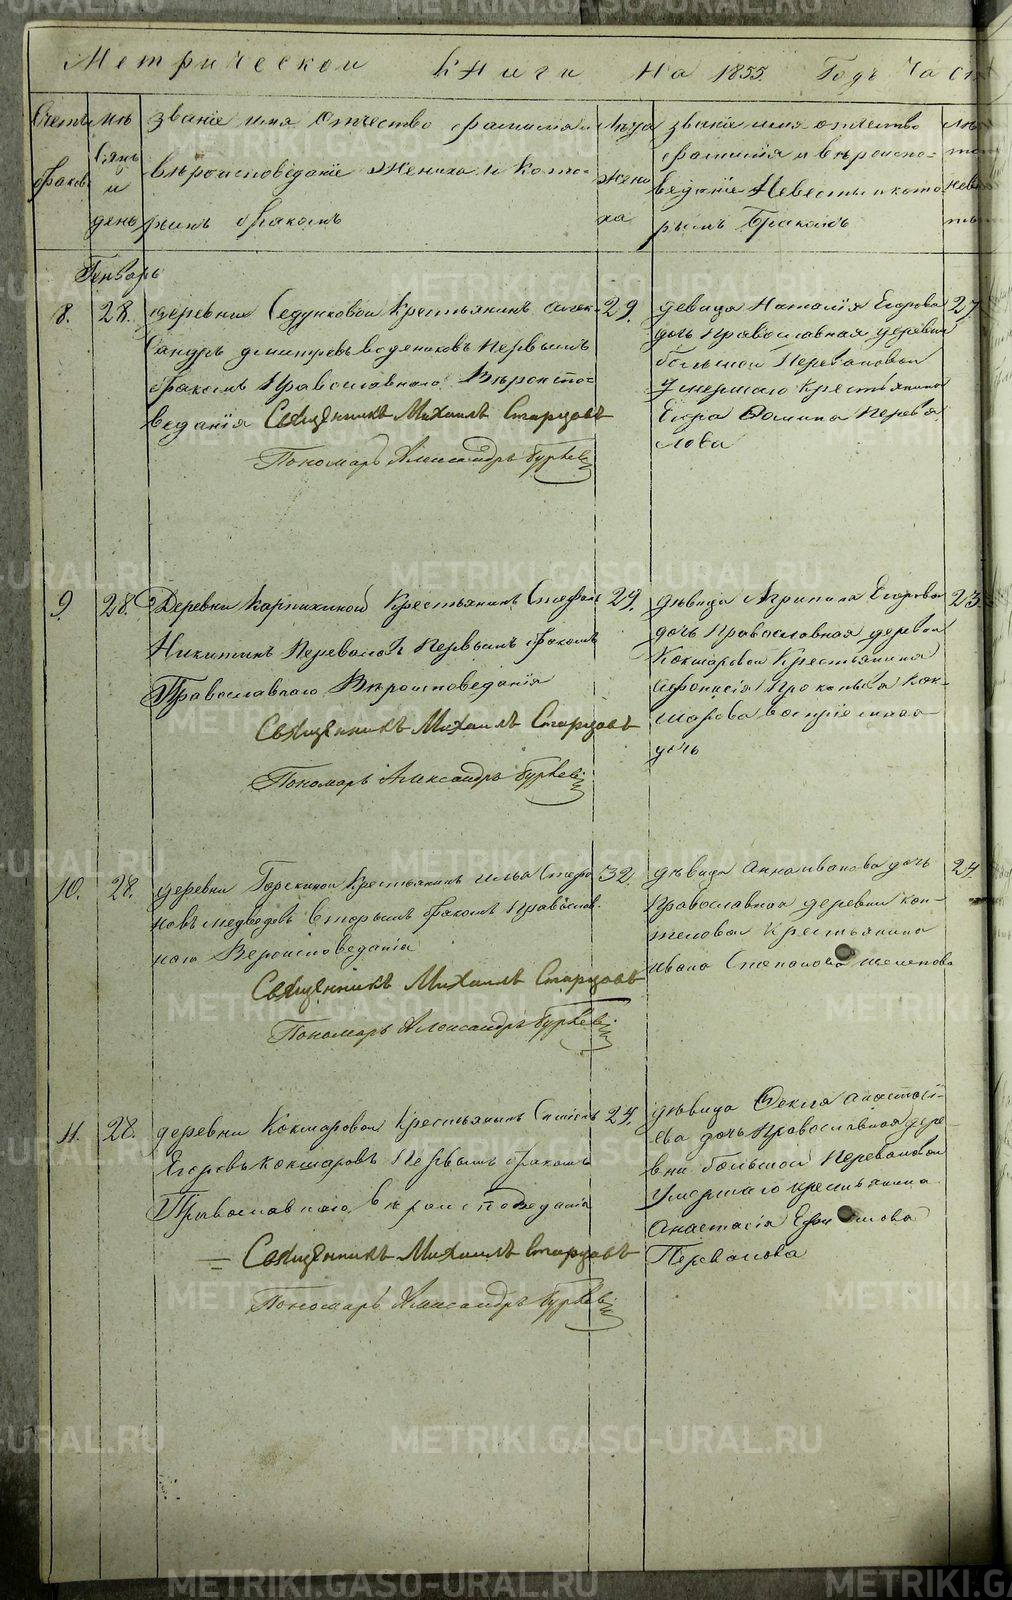 Метрической книги на 1855 Годъ Часть
Счетъ браков
мѣсяцъ и день
званіе имя отчество фамилия и
вѣроисповеданіе Жениха и кото-
рымъ бракомъ
Лѣта жениха
званіе имя отчество
фамилия и вѣроиспо-
веданіе Невесты и кото
рымъ Бракомъ
Лѣта невесты
Генварь
8. 28.
деревни Седунковой Крестьянинъ Алек
сандръ дмитревъ водениковъ первымъ
бракомъ Православнаго Вѣроиспо-
веданія Священникъ Михаилъ Старцовъ
Пономарь Александръ
29.
девица Наталія Егорова
дочь православная деревни
большой Переваловой
умершаго Крестьянина
Егора Фомина Перева
лова
27.
9. 28.
Деревни Карпихиной Крестьянинъ Стефанъ
Никитинъ Переваловъ Первымъ бракомъ
Православнаго Вѣроисповеданія
Священникъ Михаилъ Старцовъ
Пономарь Александръ
29.
дѣвица Агрипина Егорова
дочь Православная деревни
Кокшаровой Крестьянина
Афонасія Прокопьева Кок-
шарова воспріемная
дочь
23.
10. 28.
деревни Горскиной Крестьянинъ Илья Стефа
новъ медведевъ Вторымъ бракомъ Православ
наго Вероисповеданія
Священникъ Михаилъ Старцовъ
Пономарь Александръ
32.
дѣвица Анна иванова дочь
православная деревни коп-
теловой Крестьянина
Ивана Степанова шелепова
24.
11. 28.
деревни Кокшаровой Крестьянинъ
Егоровъ кокшаровъ Первымъ бракомъ
Православнаго вѣроисповеданія
Священникъ Михаилъ Старцовъ
Пономарь Александръ
24.
дѣвица Фекла Анастасі-
ева дочь православная дере-
вни большой Переваловой
умершаго крестьянина
Анастасія Ефимова
Перевалова
METRIKI.GASO-URAL.RU